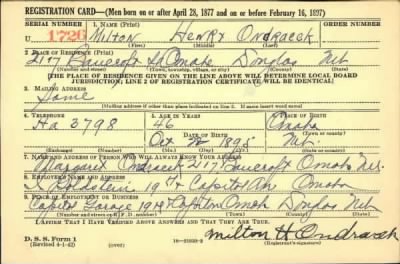 REGISTRATION CARD—(Men born on or after April 28, 1877 and on or before February 16, 1897)
SERIAL NUMBER 1. NAME (Print) ORDER NUMBER
U 1726 MILTON HENRY ONDRACEK
(First) (Middle) (Last)
2. PLACE OF RESIDENCE (Print)
2117 Bancroft St Omaha Douglas Neb
(Number and street) (Town, township, village, or city) (County) (State)
[THE PLACE OF RESIDENCE GIVEN ON THE LINE ABOVE WILL DETERMINE LOCAL BOARD
JURISDICTION; LINE 2 OF REGISTRATION CERTIFICATE WILL BE IDENTICAL]
3. MAILING ADDRESS
Same
[Mailing address if other than place indicated on line 2. If same insert word same]
4. TELEPHONE 5. AGE IN YEARS 6. PLACE OF BIRTH
Ha 3798 46 Omaha
DATE OF BIRTH (Town or county)
Oct 1895 Neb.
(Exchange) (Number) (Mo.) (Day) (Yr.) (State or country)
7. NAME AND ADDRESS OF PERSON WHO WILL ALWAYS KNOW YOUR ADDRESS
Margaret Ondracek 2117 Bancroft Omaha Neb.
8. EMPLOYER'S NAME AND ADDRESS
Goldstein 19 & Capitol Ave Omaha
9. PLACE OF EMPLOYMENT OR BUSINESS
Capitol Garage 19 & Capitol Omaha Douglas Neb
(Number and street or R. F. D. number) (Town) (County) (State)
I AFFIRM THAT I HAVE VERIFIED ABOVE ANSWERS AND THAT THEY ARE TRUE.
D. S. S. Form 1
(Revised 4-1-42) (over) Milton H Ondracek
(Registrant's signature)